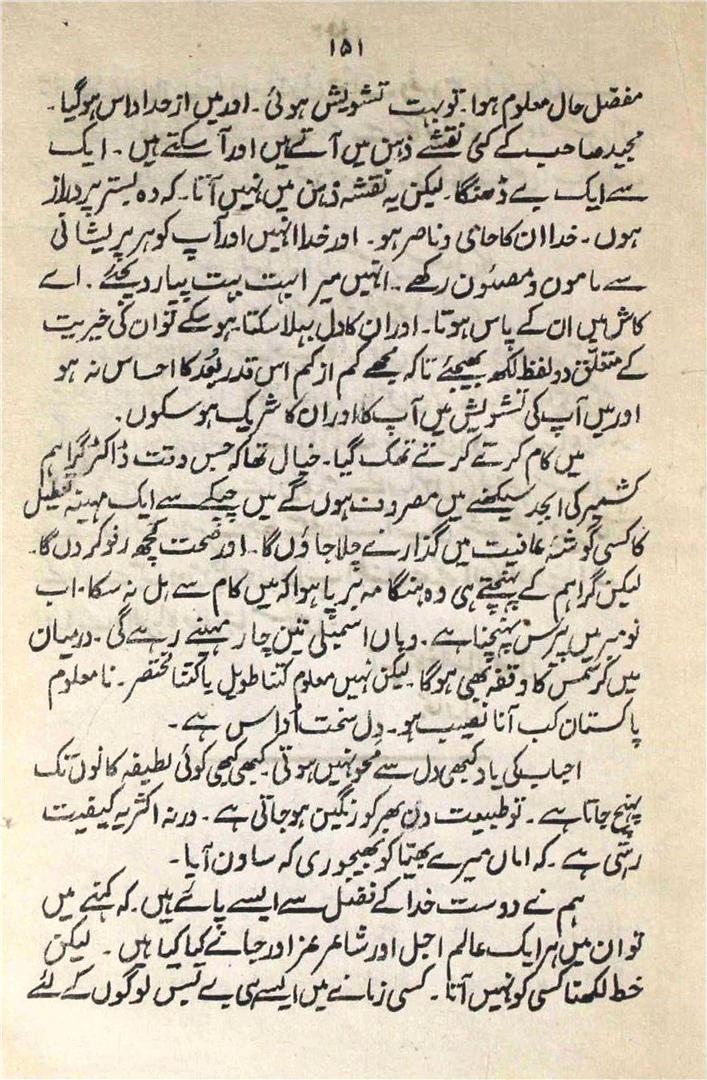 ۱۵۱
مفصّل حال معلوم ہوا۔ تو بہت تشویش ہوئی۔ اور میں ازحد اداس ہوگیا۔
مجید صاحب کے کئی نقشے ذہن میں آتے ہیں اور آسکتے ہیں۔ ایک
سے ایک بے ڈھنگا۔ لیکن یہ نقشہ ذہن میں نہیں آتا۔ کہ وہ بستر پر دراز
ہوں۔ خدا ان کا حامی و ناصر ہو۔ اور خدا انہیں اور آپ کو ہر پریشانی
سے مامون و مصئون رکھے۔ انہیں میرا بہت بہت پیار دیجئے۔ اے
کاش میں ان کے پاس ہوتا۔ اور ان کا دل بہلا سکتا۔ ہوسکے تو ان کی خیریت
کے متعلّق دو لفظ لکھ بھیجئے تاکہ مجھے کم از کم اس قدر بُعد کا احساس نہ ہو
اور میں آپ کی تشویش میں آپ کا اور ان کا شریک ہوسکوں۔
میں کام کرتے کرتے تھک گیا۔ خیال تھا کہ جس وقت ڈاکٹر گراہم
کشمیر کی ابجد سیکھنے میں مصروف ہوں گے میں چپکے سے ایک مہینہ تعطیل
کا کسی گوشۂ عافیت میں گذارنے چلا جاؤں گا۔ اور صحت کچھ رفو کر دوں گا۔
لیکن گراہم کے پہنچتے ہی وہ ہنگامہ برپا ہوا کہ میں کام سے ہل نہ سکا۔ اب
نومبر میں پیرس پہنچنا ہے۔ وہاں اسمبلی تین چار مہینے رہے گی۔ درمیان
میں کرسمس کا وقفہ بھی ہوگا۔ لیکن نہیں معلوم کتنا طویل یا کتنا مختصر۔ نامعلوم
پاکستان کب آنا نصیب ہو۔ دل سخت اُداس ہے۔
احباب کی یاد کبھی دل سے محو نہیں ہوتی۔ کبھی کبھی کوئی لطیفہ کانوں تک
پہنچ جاتا ہے۔ تو طبیعت دن بھر کو رنگین ہوجاتی ہے۔ ورنہ اکثر یہ کیفیت
رہتی ہے۔ کہ اماں میرے بھیّا کو بھیجو ری کہ ساون آیا۔
ہم نے دوست خدا کے فضل سے ایسے پائے ہیں۔ کہ کہنے میں
تو ان میں ہر ایک عالم اجل اور شاعر غز اور جانے کیا کیا ہیں۔ لیکن
خط لکھنا کسی کو نہیں آتا۔ کسی زمانے میں ایسے ہی بے فیس لوگوں کے لئے